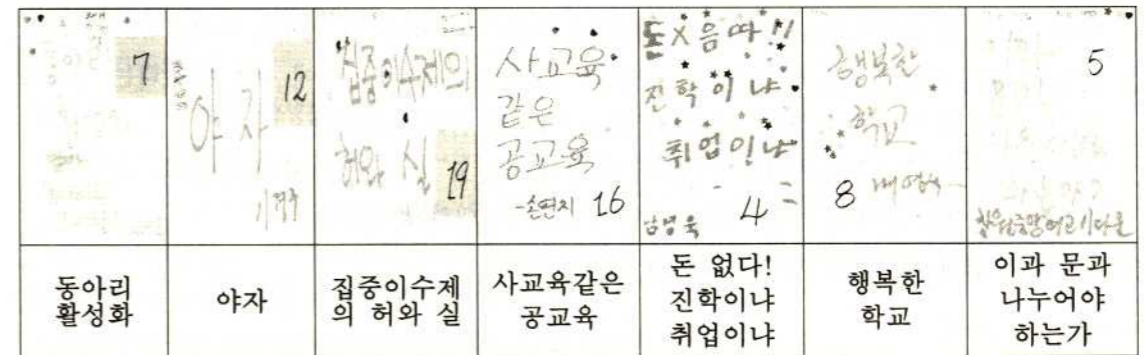 7
야자
12
집중이수제의
허와 실
19
사교육
같은
공교육
16
돈X음따!!
진학이냐
취업이냐
4
행복한
학교
8
5
동아리
활성화
야자
집중이수제
의 허와 실
사교육같은
공교육
돈 없다!
진학이냐
취업이냐
행복한
학교
이과 문과
나누어야
하는가